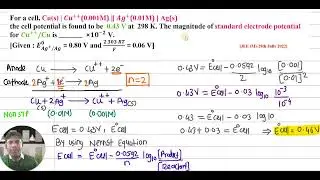 For a cell, Cu(s) | Cu⁺⁺(0.001M) || Ag⁺(0.01M) | Ag(s)
the cell potential is found to be 0.43 V at 298 K. The magnitude of standard electrode potential
for Cu⁺⁺/Cu is ____ ×10⁻² V.
[Given : E⁰Ag⁺/Ag = 0.80 V and 2.303RT/F = 0.06 V]
Anode Cu → Cu⁺⁺ + 2e⁻
Cathode 2Ag⁺ + 2e⁻ → 2Ag
n=2
Cu + 2Ag⁺ → Cu⁺⁺ + 2Ag
(s) (0.01M) (0.001M) (s)
NERNST
Ecell = 0.43V, E°cell
By using Nernst Equation
Ecell = E°cell − 0.0592/n log₁₀ [Product]/[Reactant]
0.43V = E°cell − 0.0592/2 log₁₀ [0.001]/[0.01]²
0.43 = E°cell − 0.03 log₁₀ 10⁻³/10⁻⁴
0.43 = E°cell − 0.03
0.43+0.03 = E°cell ⇒ E°cell = 0.46V